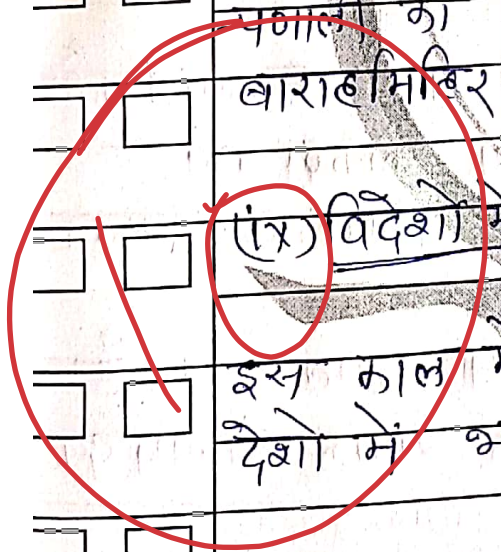 प्रणाली का
बाराहमिहिर
(ix) विदेशों में
इस काल में
देशों में